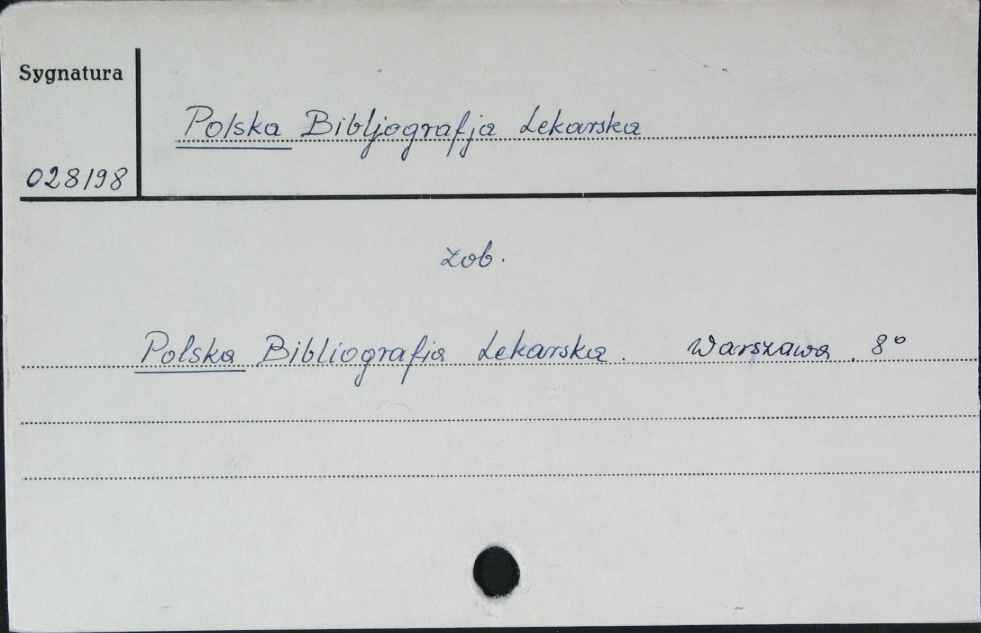 Sygnatura
Polska Bibljografja Lekarska
028198
zob.
Polska Bibliografia Lekarska. Warszawa. 8°